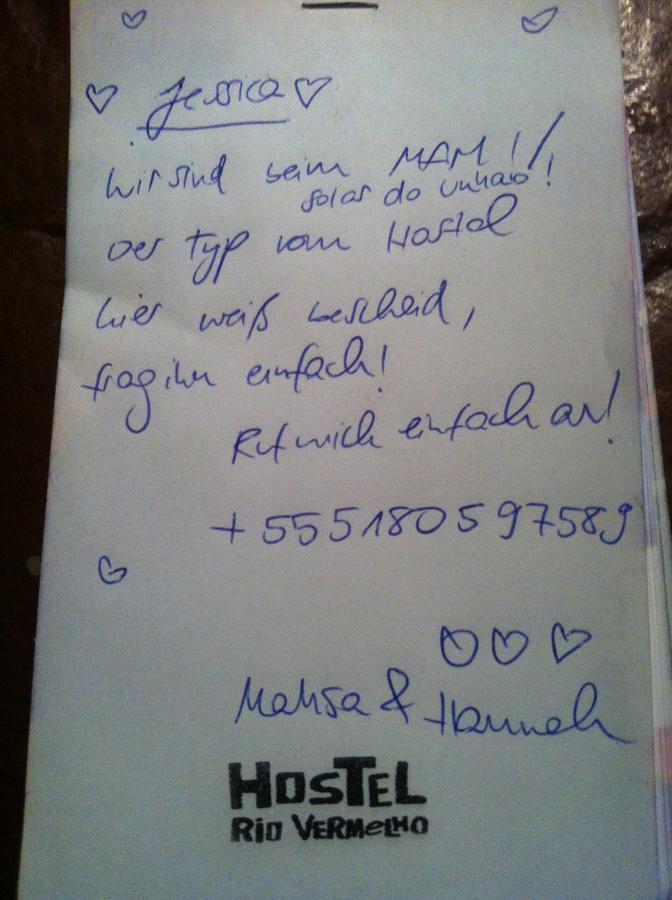 Jessica
Wir sind beim MAM!!
solar do unhao!
Der Typ vom Hostel
hier weiß bescheid,
frag ihn einfach!
Ruf mich einfach an!
+555180597589
Mahsa & Hannah
HOSTEL
RIO VERMELHO